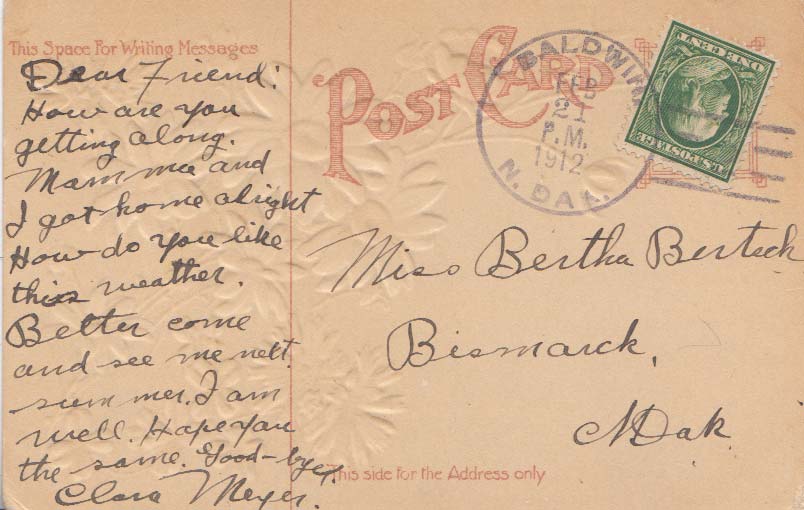 This Space For Writing Messages
POST CARD
Dear Friend:
How are you
getting along.
Mamma and
I got home alright
How do you like
this weather.
Better come
and see me nelt
summer. I am
well. Hope you
the same. Good-bye,
Clara Meyer.
BALDWIN
FEB
21
P.M.
1912
N. DAK.
U.S. POSTAGE
ONE CENT
Miss Bertha Bertsch
Bismarck,
N Dak
This side for the Address only